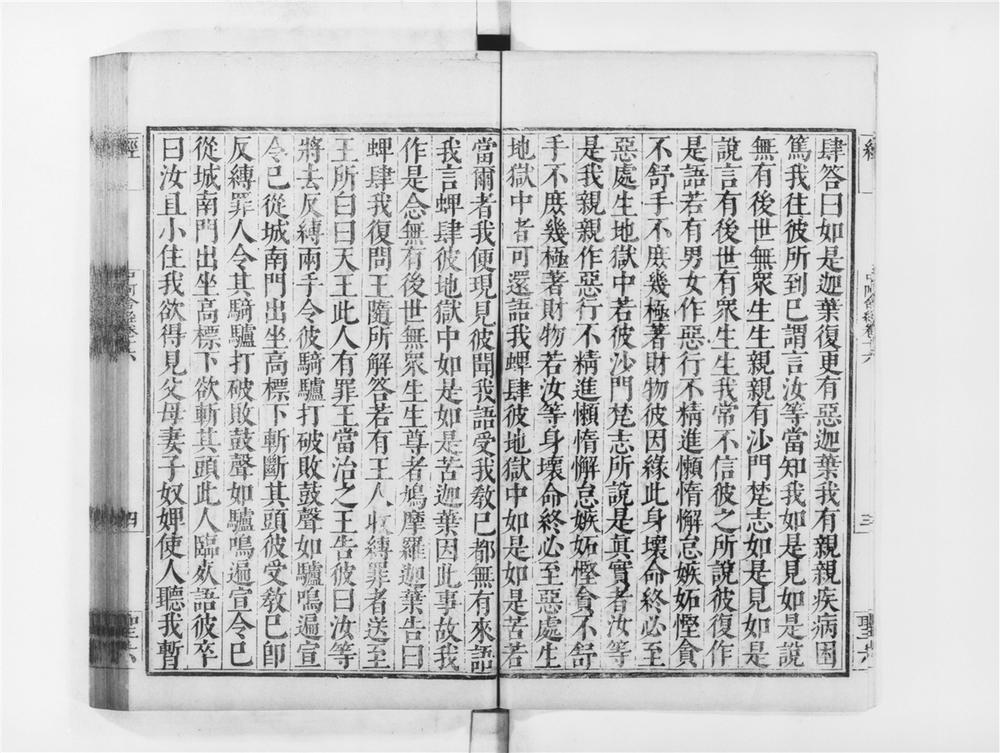 肆答曰如是迦葉復更有惡迦葉我有親親疾病困
篤我往彼所到已謂言汝等當知我如是見如是說
無有後世無衆生生親親有沙門梵志如是見如是
說言有後世有衆生生我常不信彼之所說彼復作
是語若有男女作惡行不精進懶惰懈怠嫉妬慳貪
不舒手不庶幾極著財物彼因緣此身壞命終必至
惡處生地獄中若彼沙門梵志所說是真實者汝等
是我親親作惡行不精進懶惰懈怠嫉妬慳貪不舒
手不庶幾極著財物若汝等身壞命終必至惡處生
地獄中者可還語我蜱肆彼地獄中如是如是苦若
當爾者我便現見彼聞我語受我敎已都無有來語
我言蜱肆彼地獄中如是如是苦迦葉因此事故我
作是念無有後世無衆生生尊者鳩摩羅迦葉告曰
蜱肆我復問王隨所解答若有王人收縛罪者送至
王所白曰天王此人有罪王當治之王告彼曰汝等
將去反縛兩手令彼騎驢打破敗鼓聲如驢鳴遍宣
令已從城南門出坐高標下斬斷其頭彼受敎已卽
反縛罪人令其騎驢打破敗鼓聲如驢鳴遍宣令已
從城南門出坐高標下欲斬其頭此人臨死語彼卒
曰汝且小住我欲得見父母妻子奴婢使人聽我暫